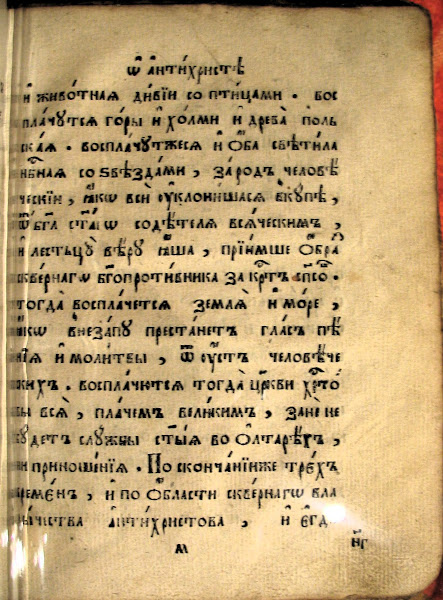 Ѿ а҆нти́христѣ
и҆ живо́тнаѧ ди́вїи со пти́цами . вос
пла́чутсѧ го́ры и҆ хо́лми и҆ древа̀ поль
скаѧ . воспла́чутжесѧ и҆ ѻ҆́ба свѣти́ла
нб҇наѧ со ѕвѣзда́ми , за ро́дъ человѣ́
ческїи , ꙗ҆́кѡ всѝ ᲂу҆клони́шасѧ вкꙋ́пѣ ,
ѿ бг҃а ст҃а́гѡ содѣ́телѧ всѧ́ческимъ ,
и҆ лестьцꙋ̀ вѣ́рꙋ ꙗ҆́ша , прїи́мше ѻ҆́бра
скве́рнагѡ бг҃опроти́вника за крⷭ҇тъ сп҃со .
тогда̀ воспла́четсѧ землѧ̀ и҆ мо́ре ,
ꙗ҆́кѡ внеза́пꙋ преста́нетъ гла́съ пѣ́
нїѧ и҆ моли́твы , ѿ ᲂу҆́стъ человѣ́че
скихъ . воспла́чютсѧ тогда̀ цр҃кви хрⷭ҇то́
вы всѧ̀ , пла́чемъ вели́кимъ , зане́ не
бꙋ́детъ слꙋ́жбы ст҃ы́ѧ во ѻ҆лтарѣ́хъ ,
ни приноше́нїѧ . По сконча́нїиже тре́хъ
време́нъ , и҆ по ѻ҆́бласти скве́рнагѡ вла
ды́чества а҆нти́христова , и҆ є҆гд
нг